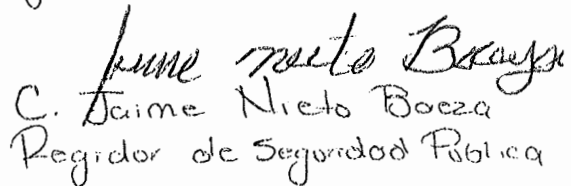 Jaime Nieto Baeza
C. Jaime Nieto Baeza
Regidor de Seguridad Pública